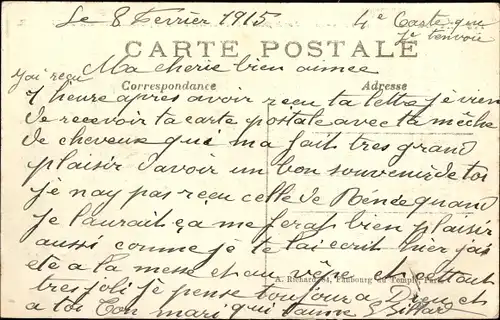 Le 8 Fevrier 1915
4e Carte que
je tenvoie
CARTE POSTALE
Ma cherie bien aimee
Correspondance
Adresse
j'ai reçu
1 heure apres avoir reçu ta lettre je vien
de recevoir ta carte postale avec ta mêche
de cheveux qui ma fait tres grand
plaisir d'avoir un bon souvenir de toi
je nay pas reçu celle de Rénée quand
je laurait ça me ferat bien plaisir
aussi comme je te lai ecrit hier jai
ete a la messe et au vêpre et cettait
A. Richard, 84, Faubourg du Temple, Paris
tres joli je pense toujour a Dieu et
a toi Ton mari qui taime